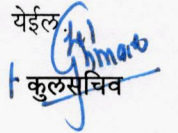 येईल.
कुलसचिव